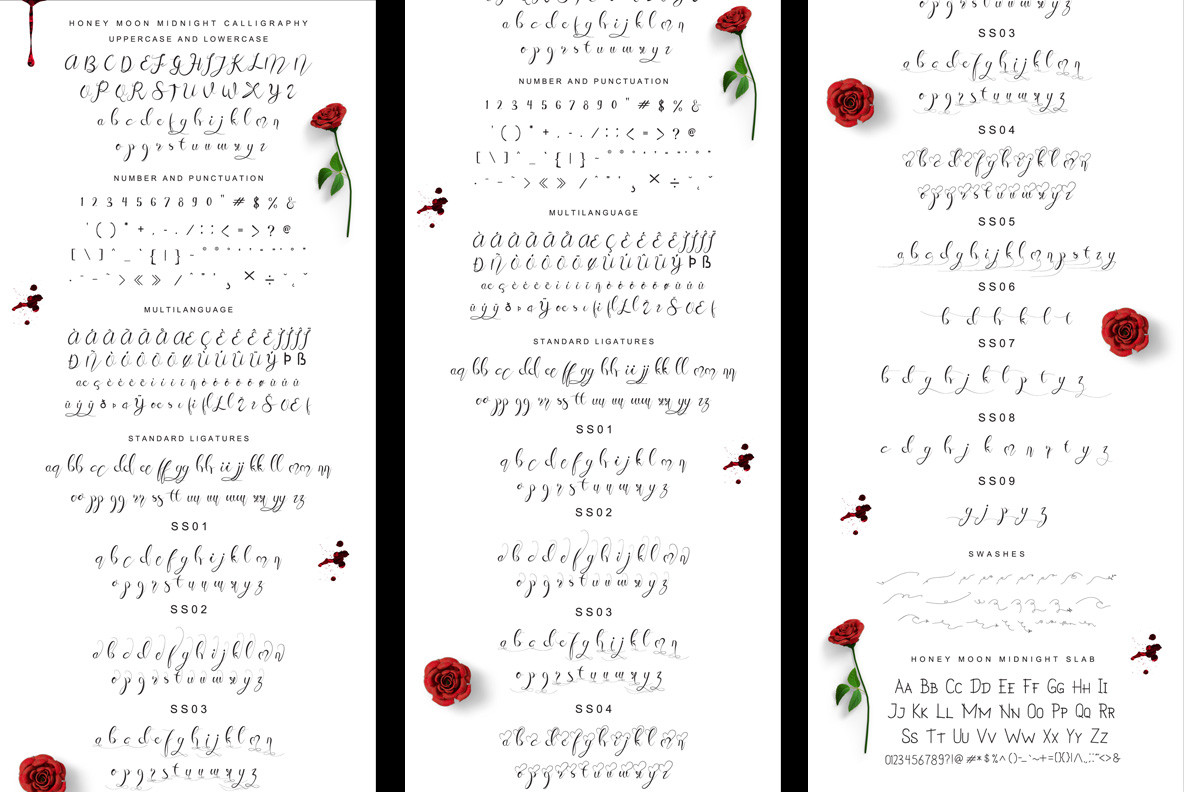 HONEY MOON MIDNIGHT CALLIGRAPHY
UPPERCASE AND LOWERCASE
A B C D E F G H I J K L M N
O P Q R S T U V W X Y Z
a b c d e f g h i j k l m n
o p q r s t u v w x y z
NUMBER AND PUNCTUATION
1 2 3 4 5 6 7 8 9 0 " # $ % &
' ( ) * + , - . / : ; < = > ? @
MULTILANGUAGE
STANDARD LIGATURES
aa bb cc dd ee ff gg hh ii jj kk ll mm nn
oo pp qq rr ss tt uu vv ww xx yy zz
SS01
a b c d e f g h i j k l m n
o p q r s t u v w x y z
SS02
a b c d e f g h i j k l m n
o p q r s t u v w x y z
SS03
a b c d e f g h i j k l m n
o p q r s t u v w x y z
a b c d e f g h i j k l m n
o p q r s t u v w x y z
NUMBER AND PUNCTUATION
1 2 3 4 5 6 7 8 9 0 " # $ % &
' ( ) * + , - . / : ; < = > ? @
MULTILANGUAGE
STANDARD LIGATURES
aa bb cc dd ee ff gg hh ii jj kk ll mm nn
oo pp qq rr ss tt uu vv ww xx yy zz
SS01
a b c d e f g h i j k l m n
o p q r s t u v w x y z
SS02
a b c d e f g h i j k l m n
o p q r s t u v w x y z
SS03
a b c d e f g h i j k l m n
o p q r s t u v w x y z
SS04
a b c d e f g h i j k l m n
o p q r s t u v w x y z
o p q r s t u v w x y z
SS03
a b c d e f g h i j k l m n
o p q r s t u v w x y z
SS04
a b c d e f g h i j k l m n
o p q r s t u v w x y z
SS05
a b c d g h i j k l m n p s t z y
SS06
b d h k l t
SS07
b d g h j k l p t y z
SS08
c d g h j k m n p t y z
SS09
g j p y z
SWASHES
HONEY MOON MIDNIGHT SLAB
Aa Bb Cc Dd Ee Ff Gg Hh Ii
Jj Kk Ll Mm Nn Oo Pp Qq Rr
Ss Tt Uu Vv Ww Xx Yy Zz
0123456789?!@ #*$%^()-_`~+={}[]|/\,.:;"'<>&